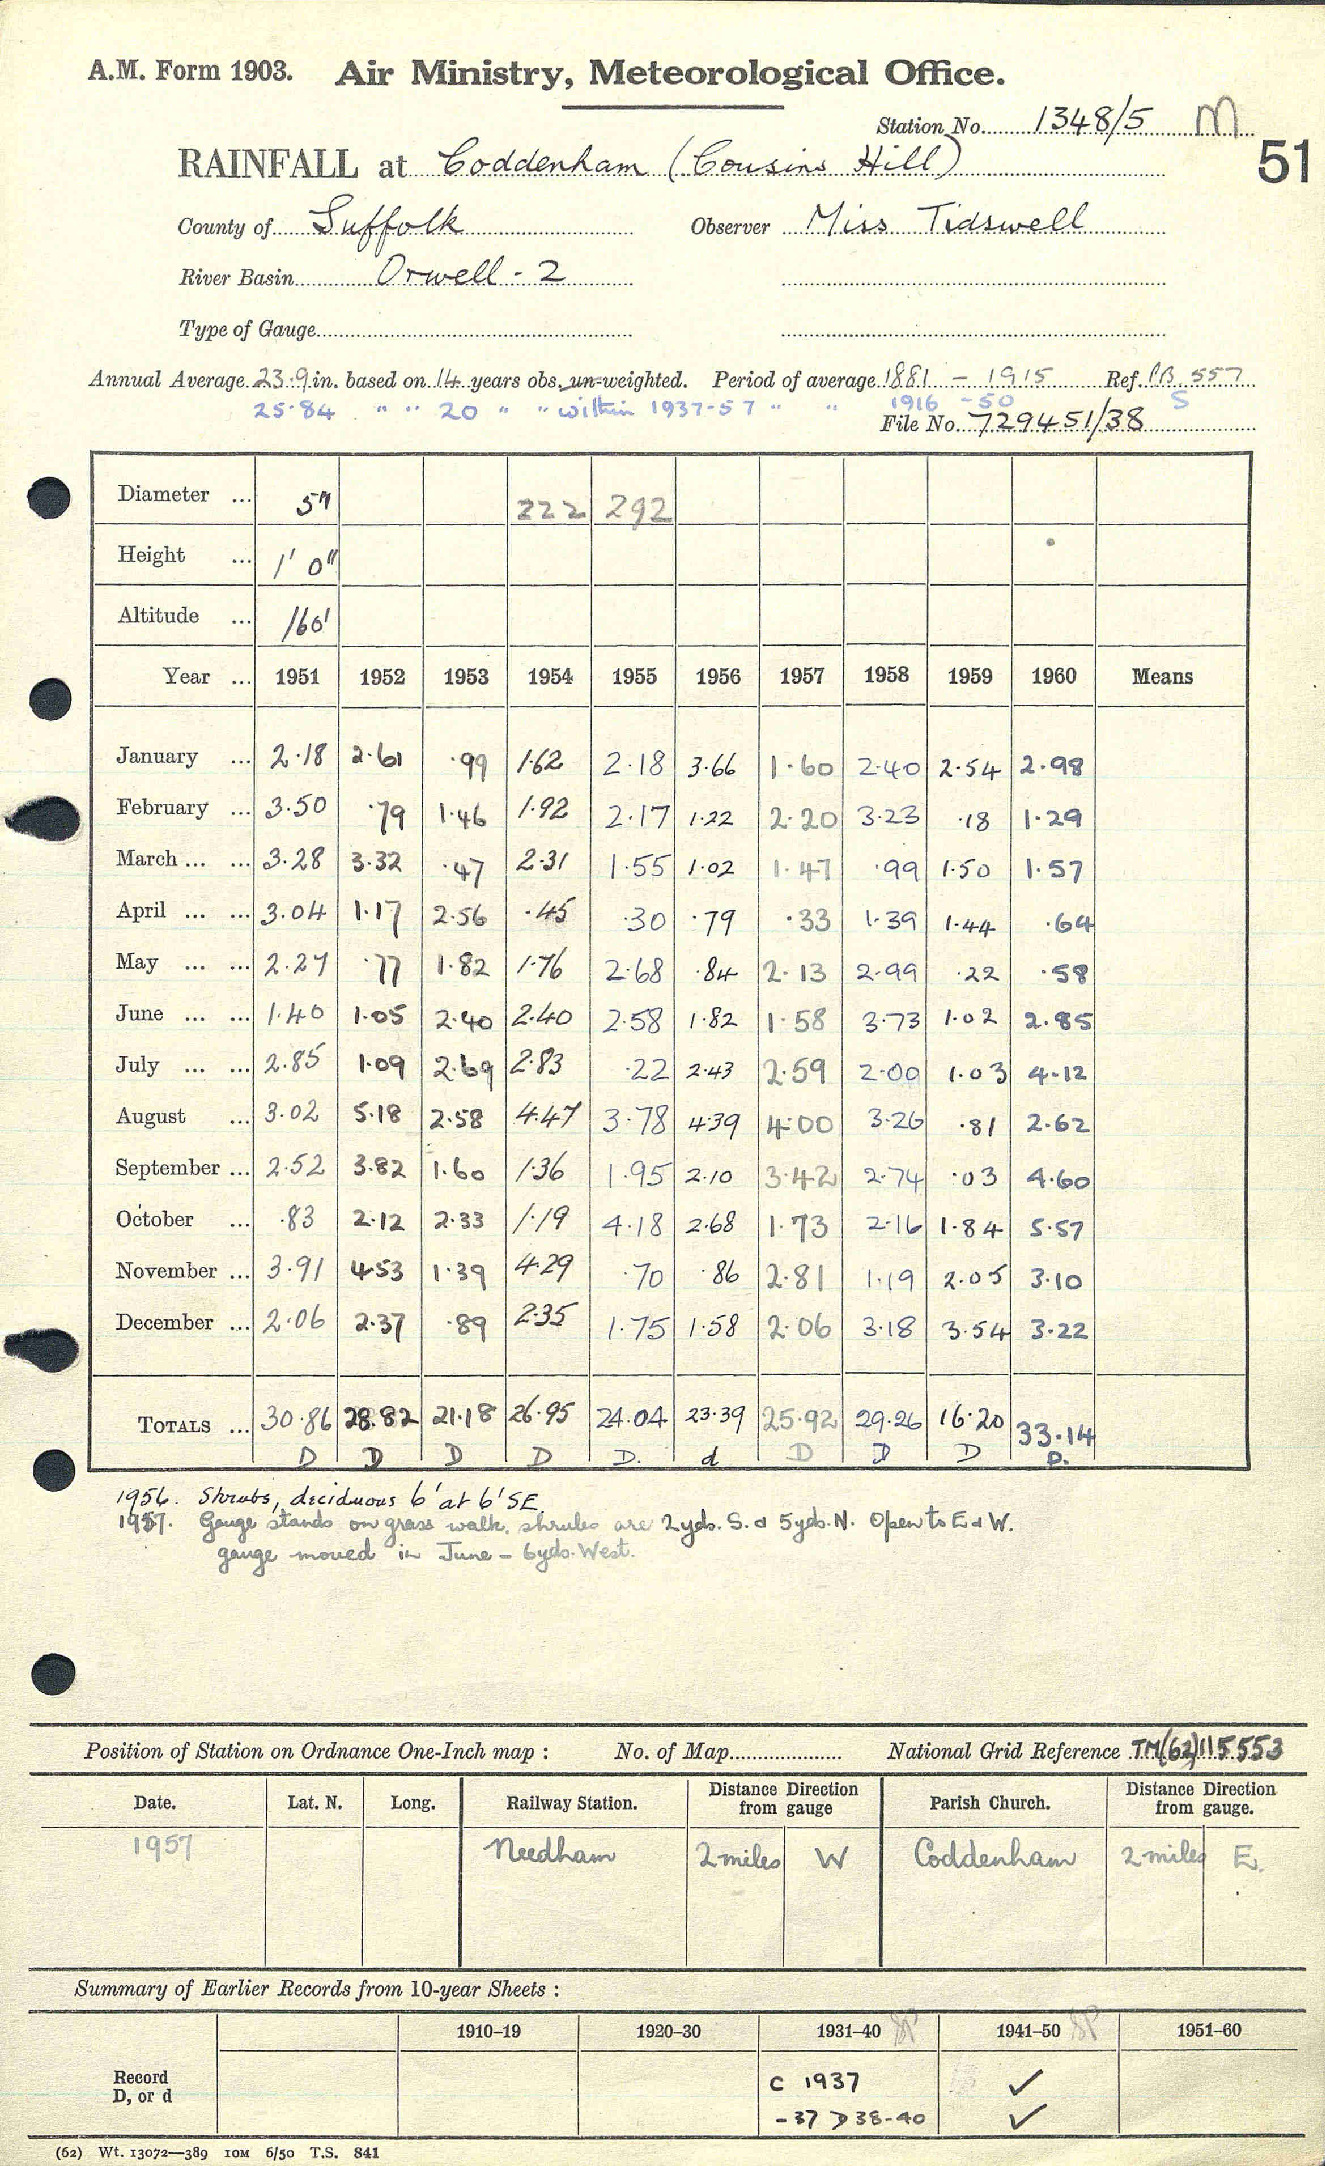 A.M. Form 1903. Air Ministry, Meteorological Office.
Station No. 1348/5 M
51
RAINFALL at Coddenham (Cousins Hill)
County of Suffolk Observer Miss Tidswell
River Basin Orwell - 2
Type of Gauge
Annual Average 23.9 in. based on 14 years obs. un-weighted. Period of average 1881 - 1915 Ref. PB 557
25.84 " " 20 " " within 1937-57 " " 1916 - 50 S
File No. 729451/38
Diameter ... 5" 222 292
Height ... 1' 0"
Altitude ... 160'
Year ... 1951 1952 1953 1954 1955 1956 1957 1958 1959 1960 Means
January ... 2.18 2.61 .99 1.62 2.18 3.66 1.60 2.40 2.54 2.98
February ... 3.50 .79 1.46 1.92 2.17 1.22 2.20 3.23 .18 1.29
March ... ... 3.28 3.32 .47 2.31 1.55 1.02 1.47 .99 1.50 1.57
April ... ... 3.04 1.17 2.56 .45 .30 .79 .33 1.39 1.44 .64
May ... ... 2.27 .77 1.82 1.76 2.68 .84 2.13 2.99 .22 .58
June ... ... 1.40 1.05 2.40 2.40 2.58 1.82 1.58 3.73 1.02 2.85
July ... ... 2.85 1.09 2.69 2.83 .22 2.43 2.59 2.00 1.03 4.12
August ... 3.02 5.18 2.58 4.47 3.78 4.39 4.00 3.26 .81 2.62
September ... 2.52 3.82 1.60 1.36 1.95 2.10 3.42 2.74 .03 4.60
October ... .83 2.12 2.33 1.19 4.18 2.68 1.73 2.16 1.84 5.57
November ... 3.91 4.53 1.39 4.29 .70 .86 2.81 1.19 2.05 3.10
December ... 2.06 2.37 .89 2.35 1.75 1.58 2.06 3.18 3.54 3.22
TOTALS ... 30.86 28.82 21.18 26.95 24.04 23.39 25.92 29.26 16.20 33.14
D D D D D. d D D D D.
1956. Shrubs, deciduous 6' at 6' SE.
1957. Gauge stands on grass walk. shrubs are 2 yds. S. & 5 yds. N. Open to E & W.
gauge moved in June - 6 yds. West.
Position of Station on Ordnance One-Inch map : No. of Map National Grid Reference TM(62)115553
Date. Lat. N. Long. Railway Station. Distance Direction from gauge Parish Church. Distance Direction from gauge.
1957 Needham 2 miles W Coddenham 2 miles E.
Summary of Earlier Records from 10-year Sheets :
1910–19 1920–30 1931–40 SP 1941–50 SP 1951–60
Record D, or d
C 1937 ✓
- 37 D 38-40 ✓
(62) Wt. 13072—389 10M 6/50 T.S. 841